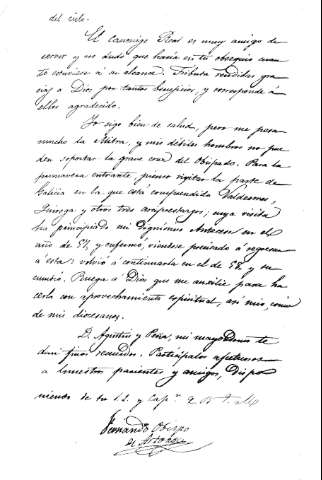 del cielo.
El canonigo Real es muy amigo de
servir y no dudo que haria en tu obsequio cuan
to estuviera á su alcance. Tributa rendidas gra
cias á Dios por tantos beneficios, y corresponde á
ellos agradecido.
Yo sigo bien de salud, pero me pesa
mucho la Mitra, y mis débiles hombros no pue
den soportar la grave cruz del Obispado. Para la
primavera entrante, pienso visitar la parte de
Galicia en la que está comprendida Valdeorras,
Quiroga y otros tres arciprestazgos; cuya visita
ha principiado mi Dignisimo Antecesor en el
año de 57, y enfermó, viendose precisado á regresar
á esta: volvió á continuarla en el de 58, y su
cumbió. Ruega á Dios que me auxilie para ha
cerla con aprovechamiento espiritual, asi mio, como
de mis diocesanos.
D. Agustin y Peña, mi mayordomo te
dan finos recuerdos. Participalos afectuosos
á nuestros parientes y amigos, Dispo
niendo de tu S. y Capn.
Fernando Obispo
de Astorga